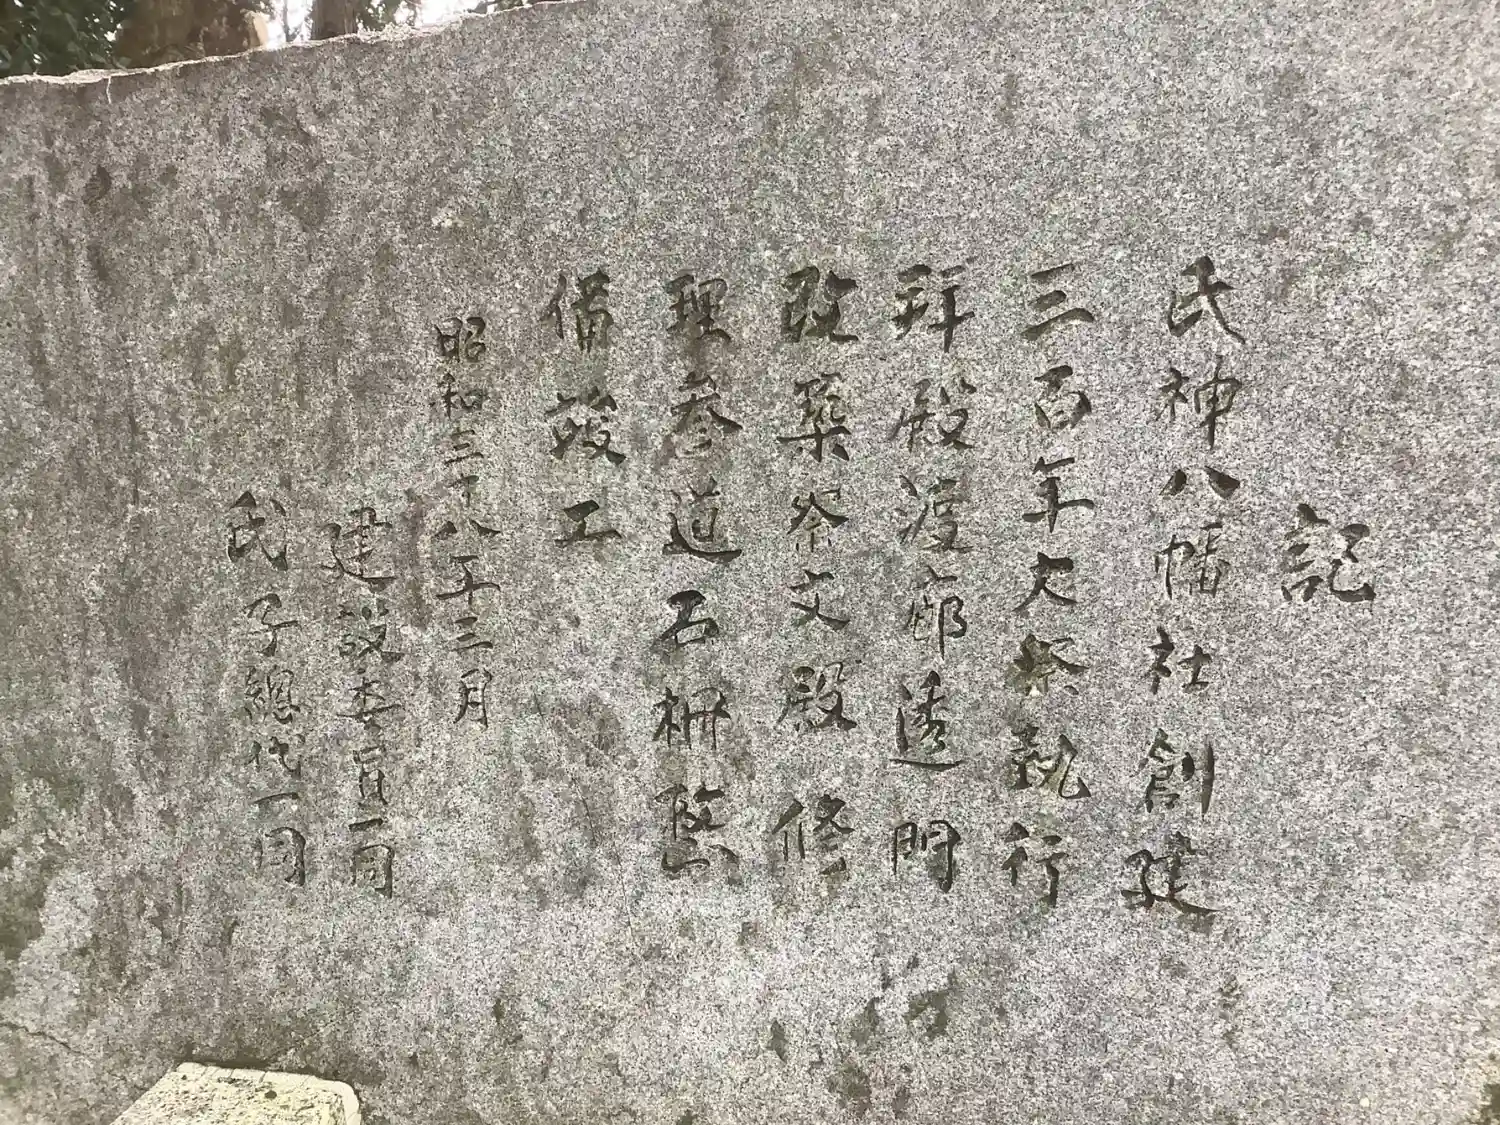 記
氏神八幡社創建
三百年大祭執行
拜殿渡廊透門
改築祭文殿修
理参道石柵整
備竣工
昭和三十八年三月
建設委員一同
氏子總代一同